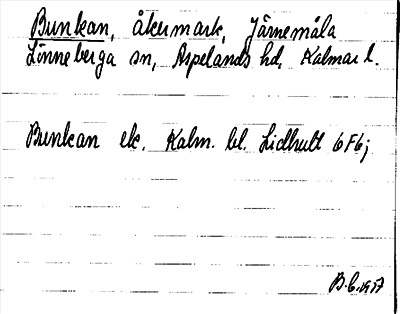 Bunkan, åkermark, Järnemåla
Lönneberga sn, Aspelands hd, Kalmar l.
Bunkan ek. Kalm. bl. Lidhult 6 F 6 j
B.C. 1957